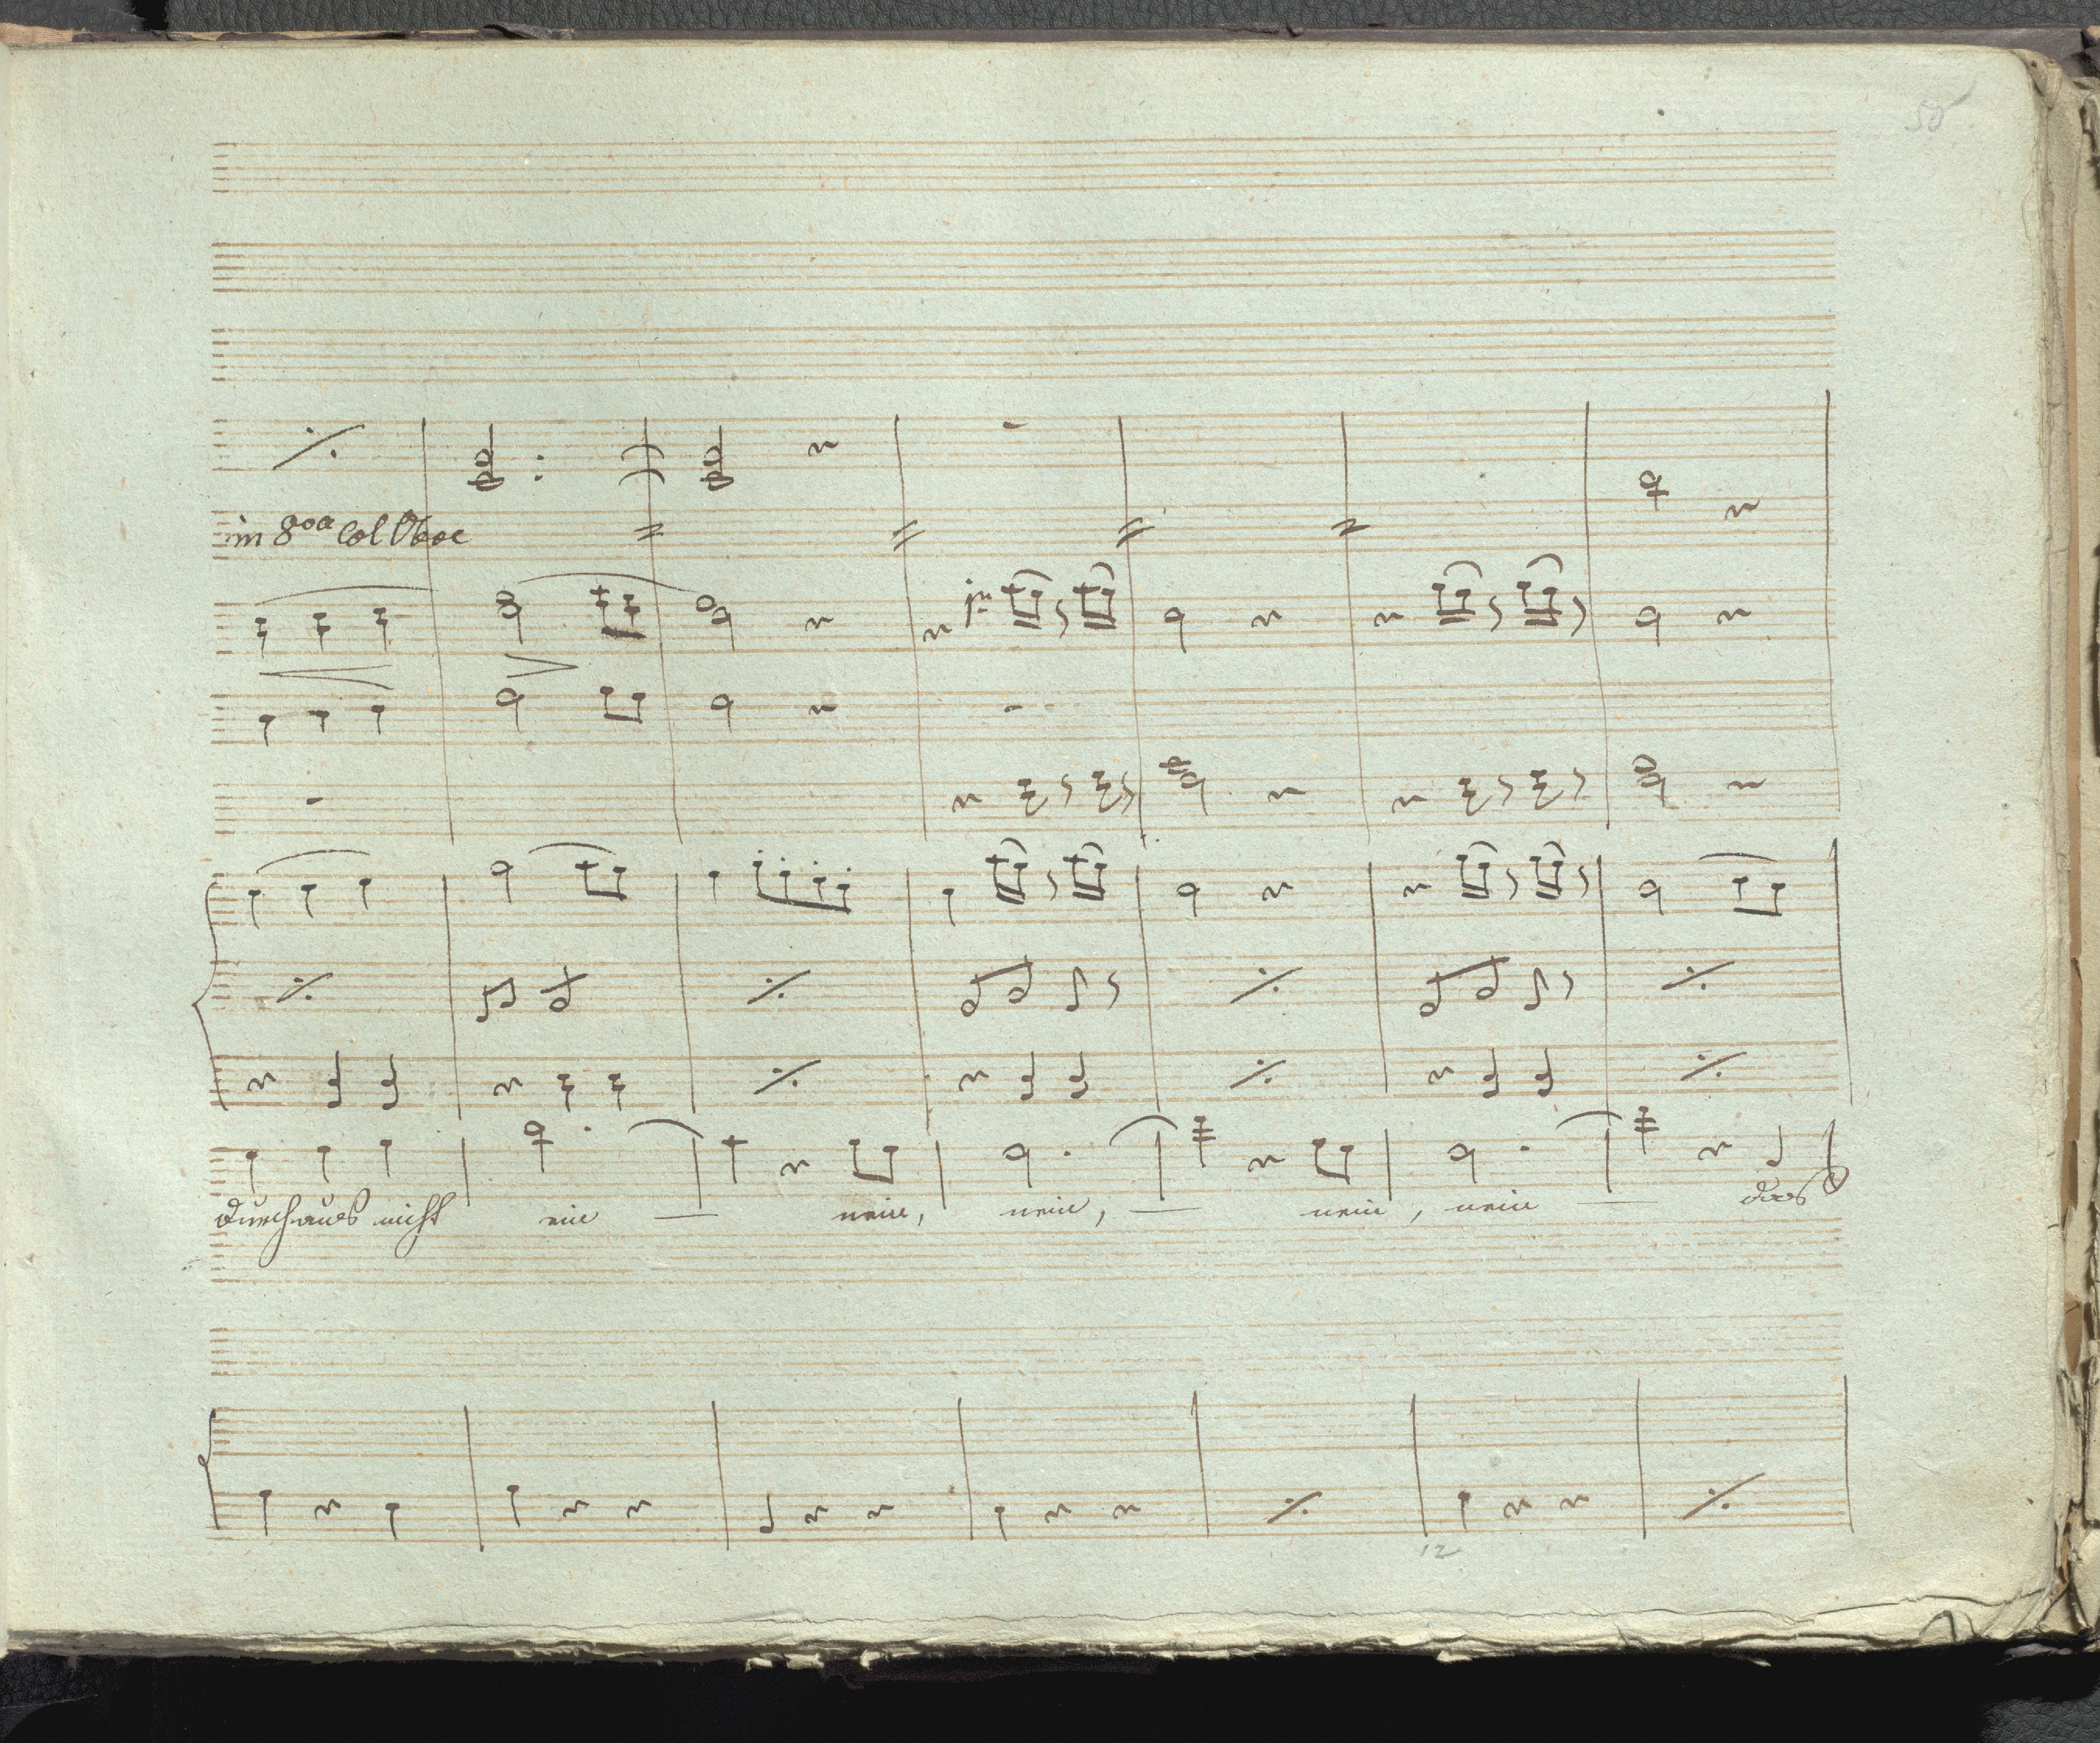 50
in 8va Col Oboe
durchaus nicht ein — nein, nein, — nein, nein — das
12